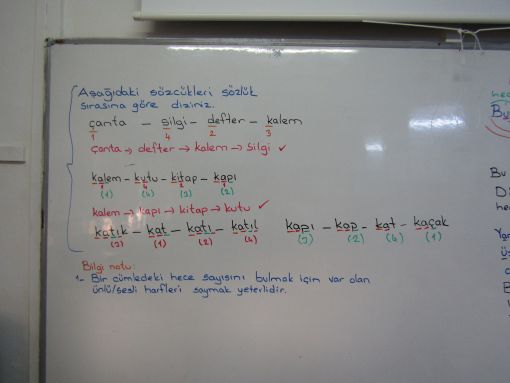 Aşağıdaki sözcükleri sözlük
sırasına göre diziniz.
çanta – silgi – defter – kalem
1 4 2 3
çanta → defter → kalem → silgi ✓
kalem – kutu – kitap – kapı
(1) (4) (3) (2)
kalem → kapı → kitap → kutu ✓
katık – kat – katı – katıl kapı – kap – kat – kaçak
(3) (1) (2) (4) (3) (2) (4) (1)
Bilgi notu:
1- Bir cümledeki hece sayısını bulmak için var olan
ünlü/sesli harfleri saymak yeterlidir.
Bu